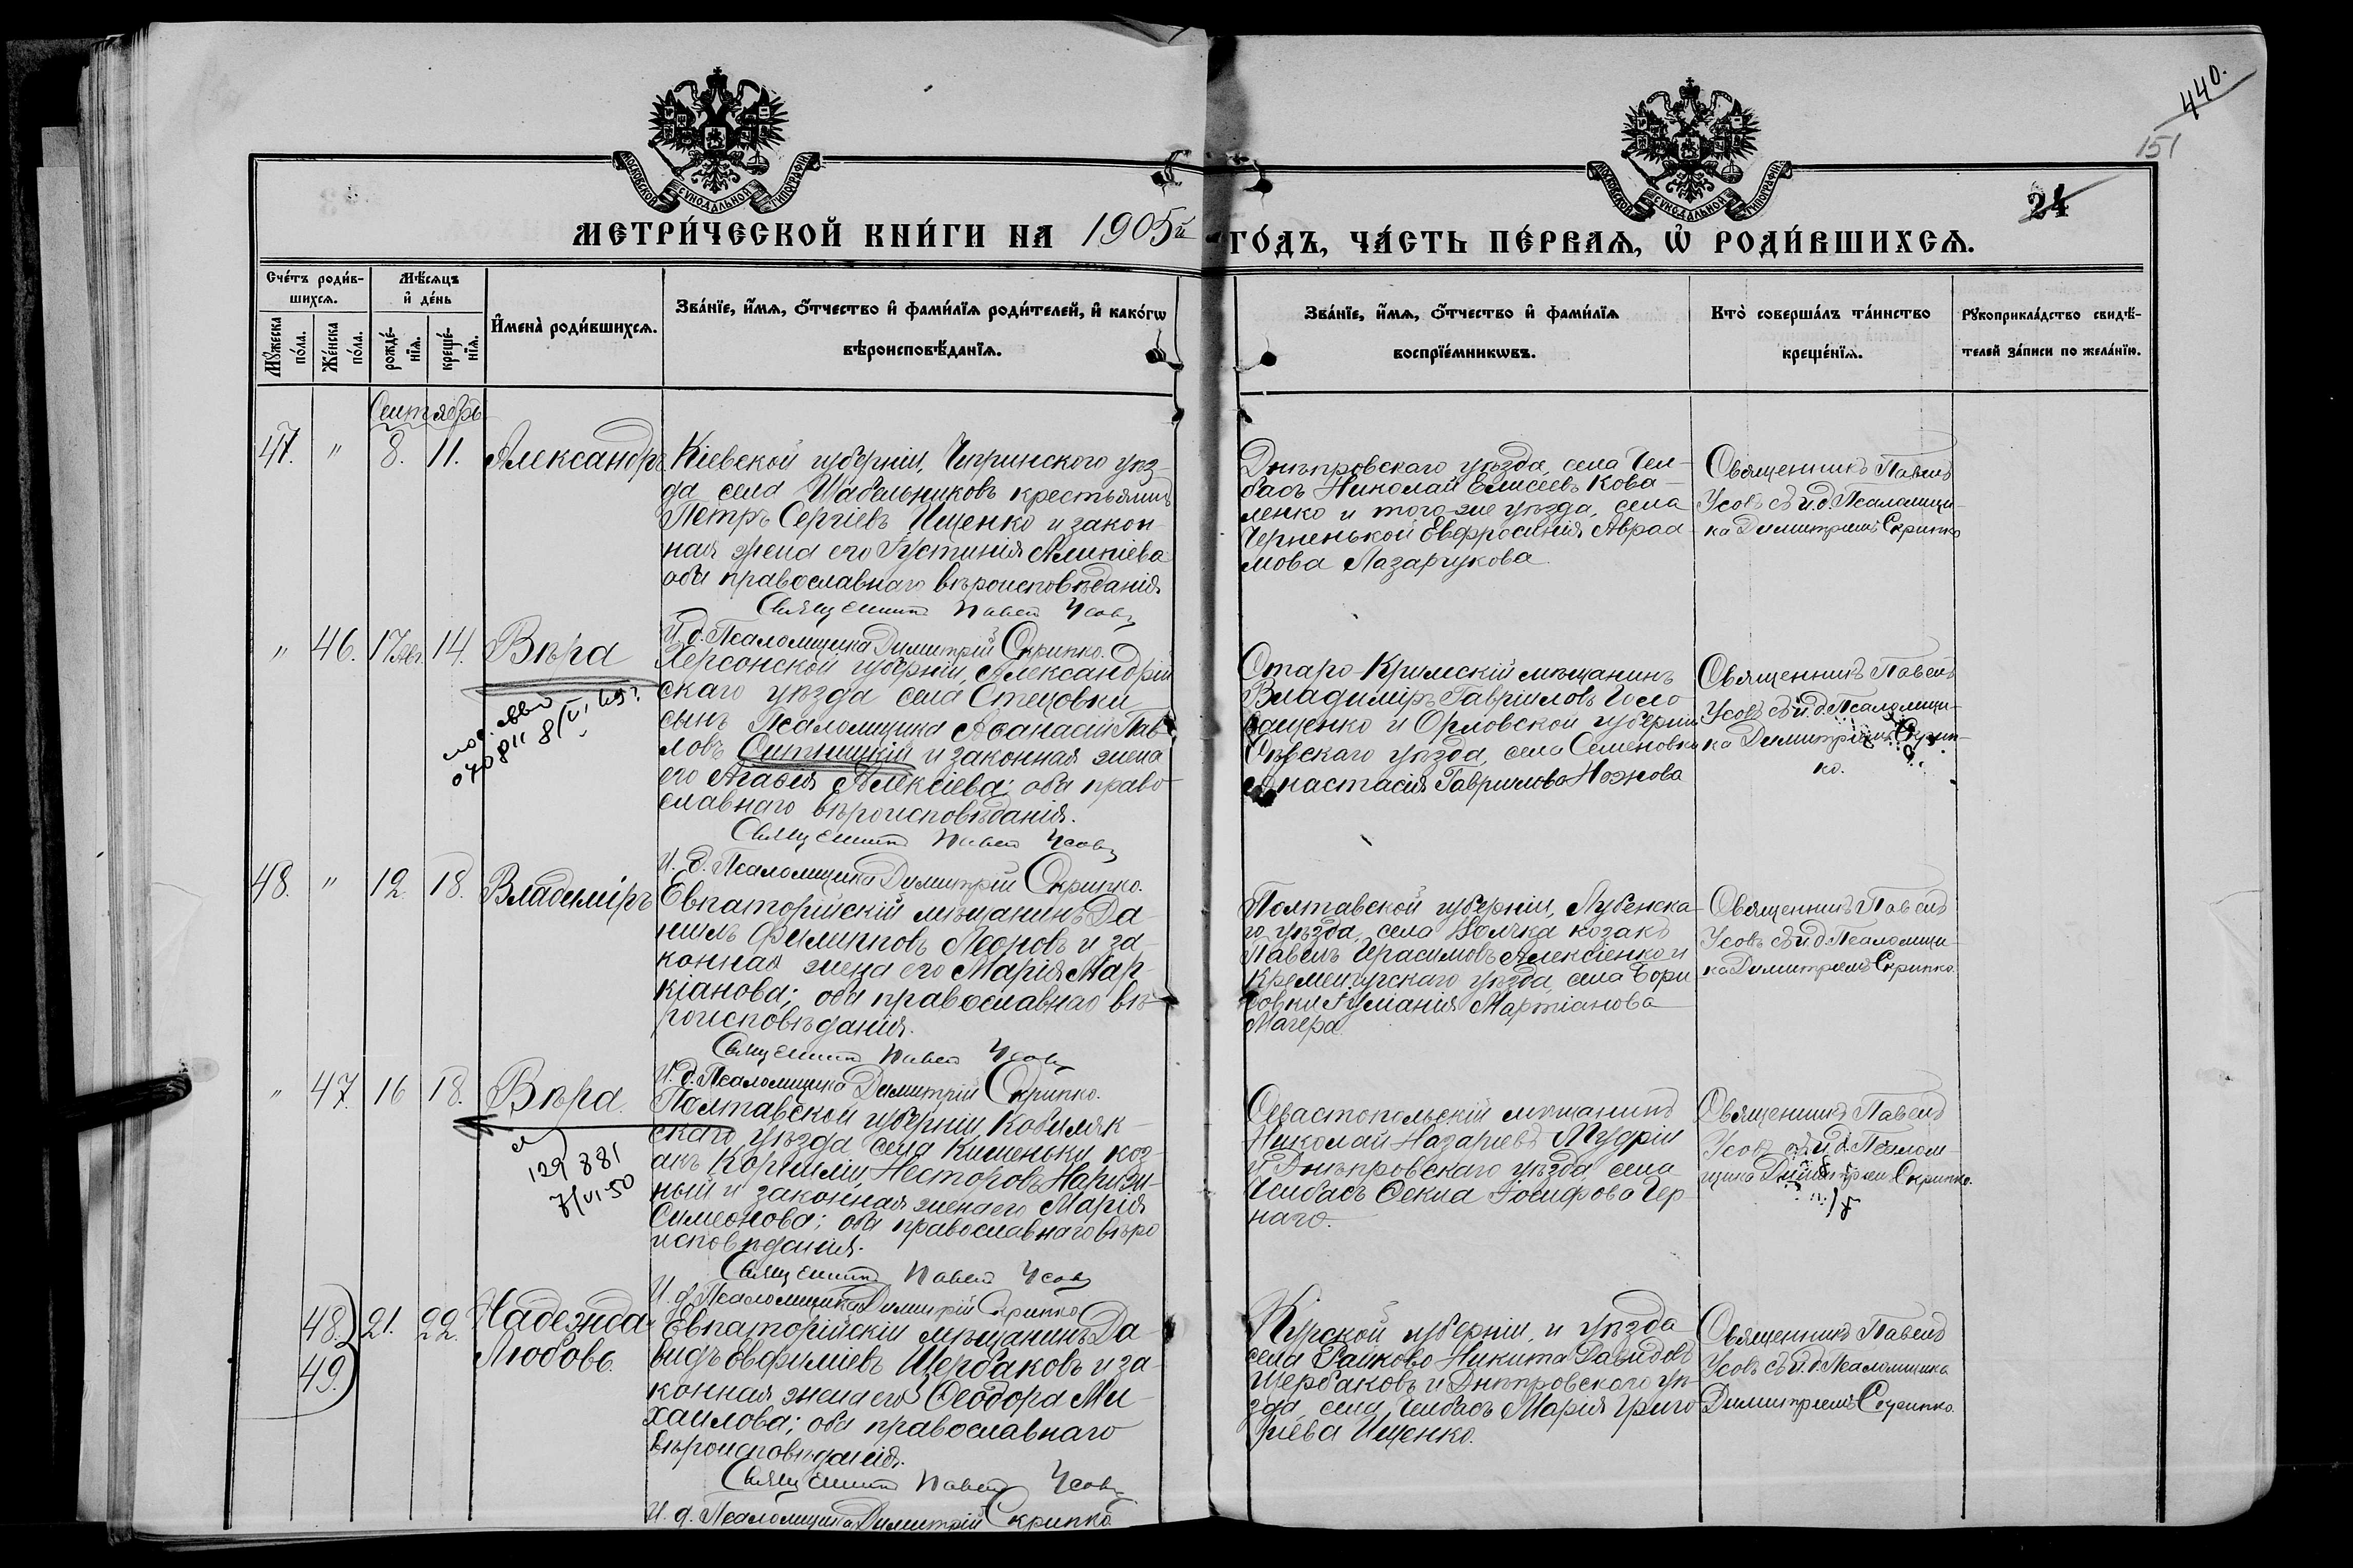 440.
151
24
МОСКОВСКОЙ СУНОДАЛЬНОЙ ТИПОГРАФІИ
МОСКОВСКОЙ СУНОДАЛЬНОЙ ТИПОГРАФІИ
МЕТРИ́ЧЕСКОЙ КНИ́ГИ НА 1905й ГО́ДЪ, ЧА́СТЬ ПЕ́РВАѦ, Ѡ҆ РОДИ́ВШИХСѦ.
Сче́тъ роди́в-
шихсѧ.
Мꙋ́жеска по́ла.
Же́нска по́ла.
Мѣ́сѧцъ
и҆ де́нь
рожде́-
нїѧ.
креще́-
нїѧ.
И҆мена̀ роди́вшихсѧ.
Зва́нїе, и҆́мѧ, ѻ҆́тчество и҆ фами́лїѧ роди́телей, и҆ како́гѡ
вѣроисповѣ́данїѧ.
Зва́нїе, и҆́мѧ, ѻ҆́тчество и҆ фами́лїѧ
воспрїе́мникѡвъ.
Кто̀ соверша́лъ та́инство
креще́нїѧ.
Рꙋкоприкла́дство свидѣ́-
телей за́писи по жела́нїю.
Сентябрь
47. " 8. 11. Александръ
Кіевской губерніи, Чигринского уѣз-
да села Шабельниковъ крестьянинъ
Петръ Сергіевъ Ищенко и закон-
ная жена его Іустинія Алипіева
оба православнаго вѣроисповѣданія
Священникъ Павелъ Усовъ
И. д. Псаломщика Димитрій Скрипко.
Днѣпровскаго уѣзда, села Чел-
басъ Николай Елисеевъ Кова-
ленко и того-же уѣзда, села
Черненькой Евфросинія Авраа-
мова Лазарукова
Священникъ Павелъ
Усовъ съ и. д. Псаломщи-
ка Димитріемъ Скрипко
" 46. 17 Авг. 14. Вѣра
8/VI 49 г.
Херсонской губерніи, Александрій
скаго уѣзда села Стецовки
сынъ Псаломщика Аѳанасій Пав
ловъ Ситницкій и законная жена
его Агаѳія Алексіева; оба право-
славнаго вѣроисповѣданія.
Священникъ Павелъ Усовъ
И. д. Псаломщика Димитрій Скрипко.
Старо-Крымскій мѣщанинъ
Владиміръ Гавріиловъ Голо
ващенко и Орловской губерніи
Сѣвскаго уѣзда, села Семеновки
Анастасія Гавріилова Ножова
Священникъ Павелъ
Усовъ съ и. д. Псаломщи-
ка Димитріемъ Скрип-
ко.
48. " 12. 18. Владиміръ
Евпаторійскій мѣщанинъ Да-
ніилъ Филипповъ Леоновъ и за-
конная жена его Марія Мар-
кіанова; оба православнаго вѣ-
роисповѣданія.
Священникъ Павелъ Усовъ
И. д. Псаломщика Димитрій Скрипко.
Полтавской губерніи, Лубенска-
го уѣзда, села козакъ
Павелъ Герасимовъ Алексіенко и
Кременчугскаго уѣзда, села Бори
совки Іуліанія Мартіанова
Магера
Священникъ Павелъ
Усовъ съ и. д. Псаломщи-
ка Димитріемъ Скрипко.
" 47. 16 18. Вѣра.
129881
7/VI-50
Полтавской губерніи, Кобеляк-
скаго уѣзда села Кишеньки, коз-
акъ Корнилій Несторовъ Нарѣж-
ный и законная жена его Марія
Симеонова; оба православнаго вѣро
исповѣданія.
Священникъ Павелъ Усовъ
И. д. Псаломщика Димитрій Скрипко
Севастопольскій мѣщанинъ
Николай Назаріевъ Мудрій
и Днѣпровскаго уѣзда, села
Челбасъ Ѳекла Іосифова Чер
наго.
Священникъ Павелъ
Усовъ съ и. д. Псалом-
щика Димитріемъ Скрипко.
48.) 21. 22. Надежда
49.) Любовь.
Евпаторійскій мѣщанинъ Да-
видъ Евфиміевъ Щербаковъ и за-
конная жена его Ѳеодора Ми
хаилова; оба православнаго
вѣроисповѣданія.
Священникъ Павелъ Усовъ
И. д. Псаломщика Димитрій Скрипко.
Курской губерніи, и уѣзда
села Райково Никита Давидовъ
Щербаковъ и Днѣпровского уѣ-
зда, села Челбасъ Марія Григо
ріева Ищенко.
Священникъ Павелъ
Усовъ съ и. д. Псаломщика
Димитріемъ Скрипко.